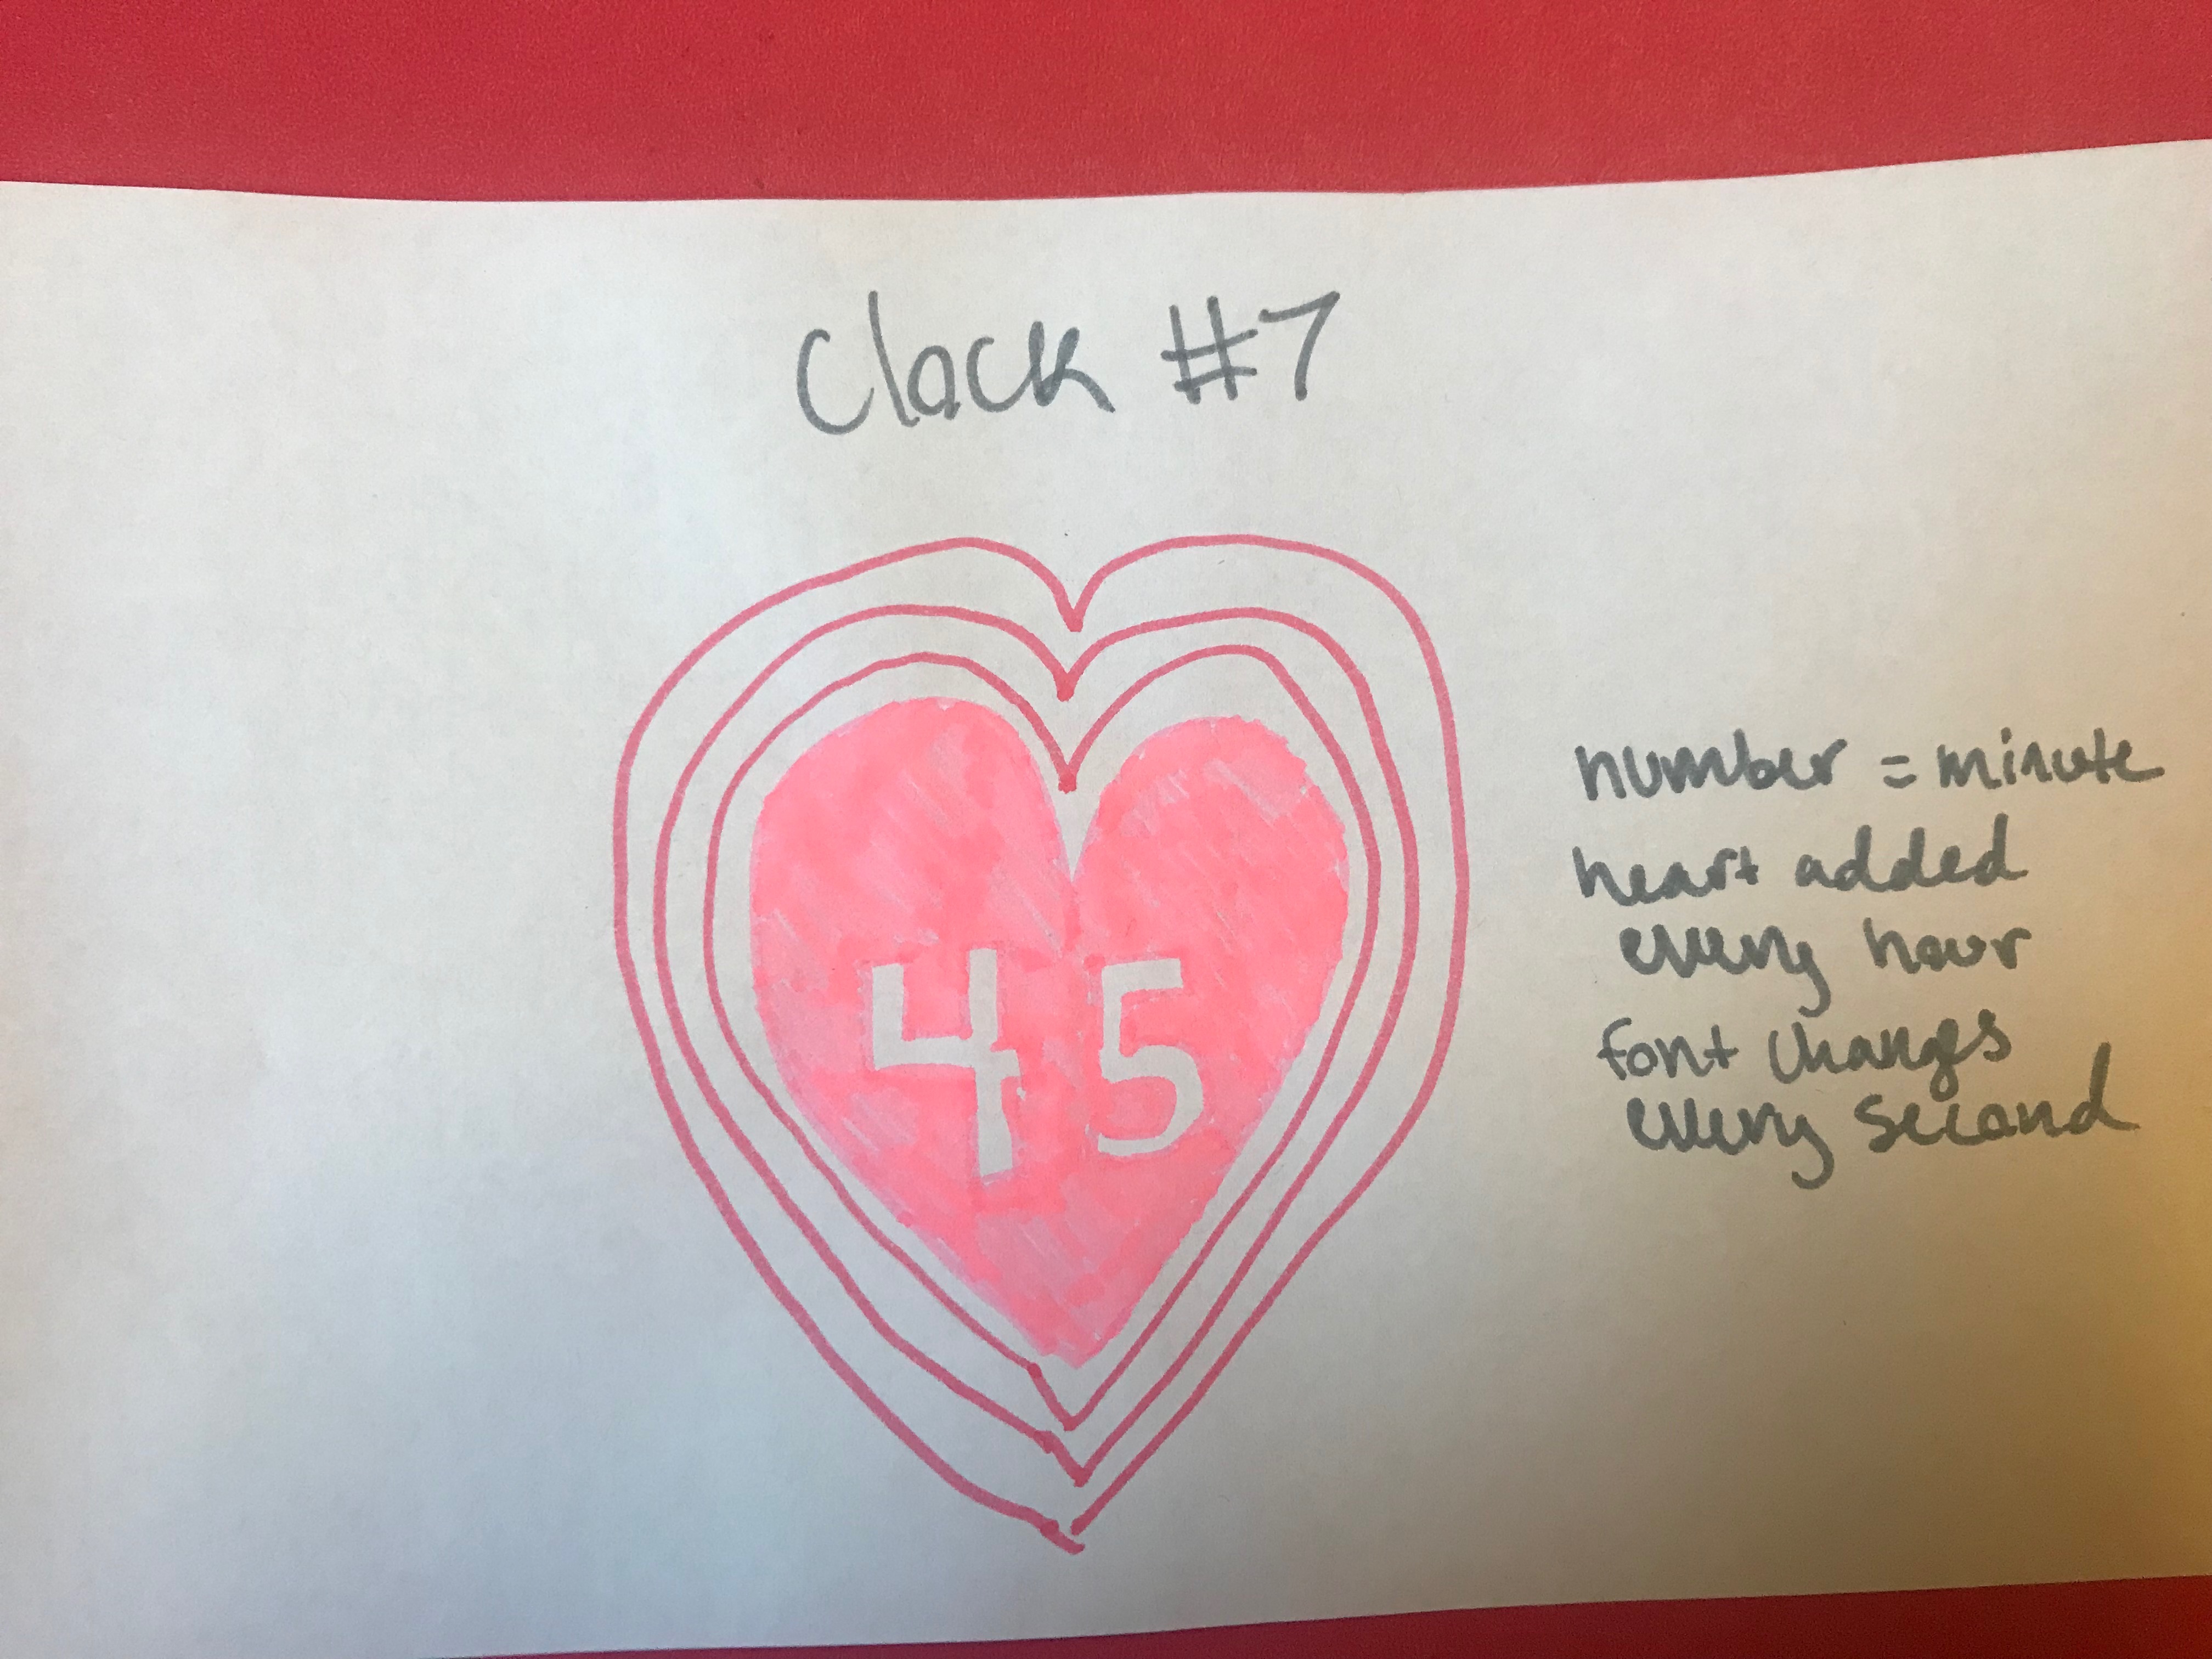 Clock #7
45
number = minute
heart added
every hour
font changes
every second